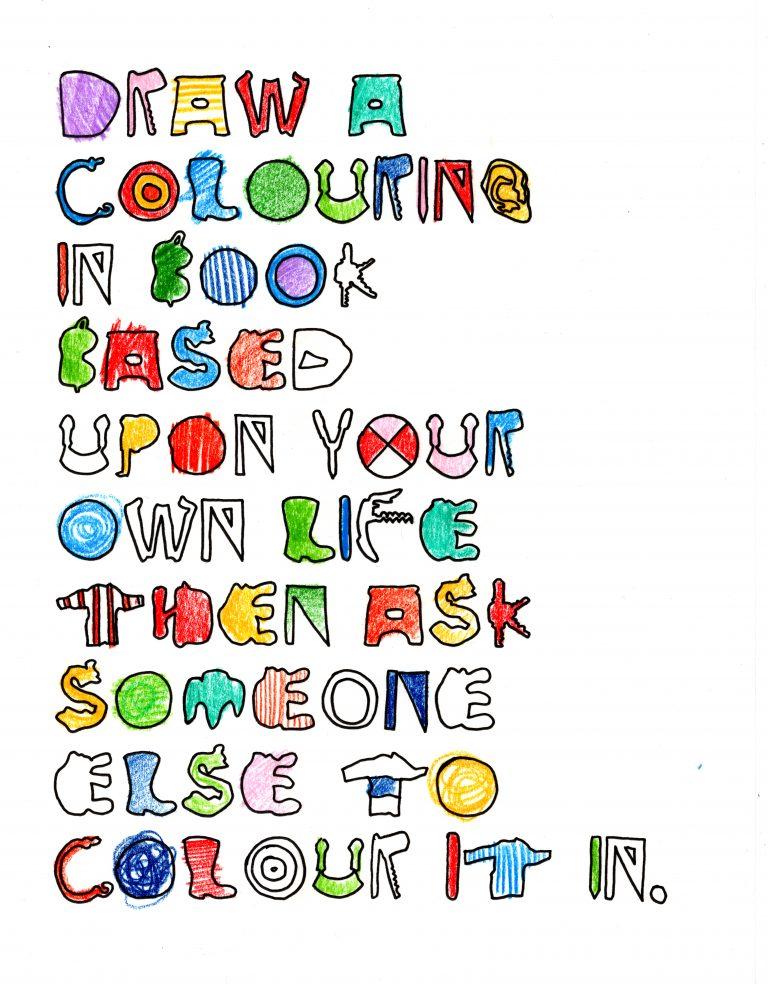 DRAW A
COLOURING
IN BOOK
BASED
UPON YOUR
OWN LIFE
THEN ASK
SOMEONE
ELSE TO
COLOUR IT IN.